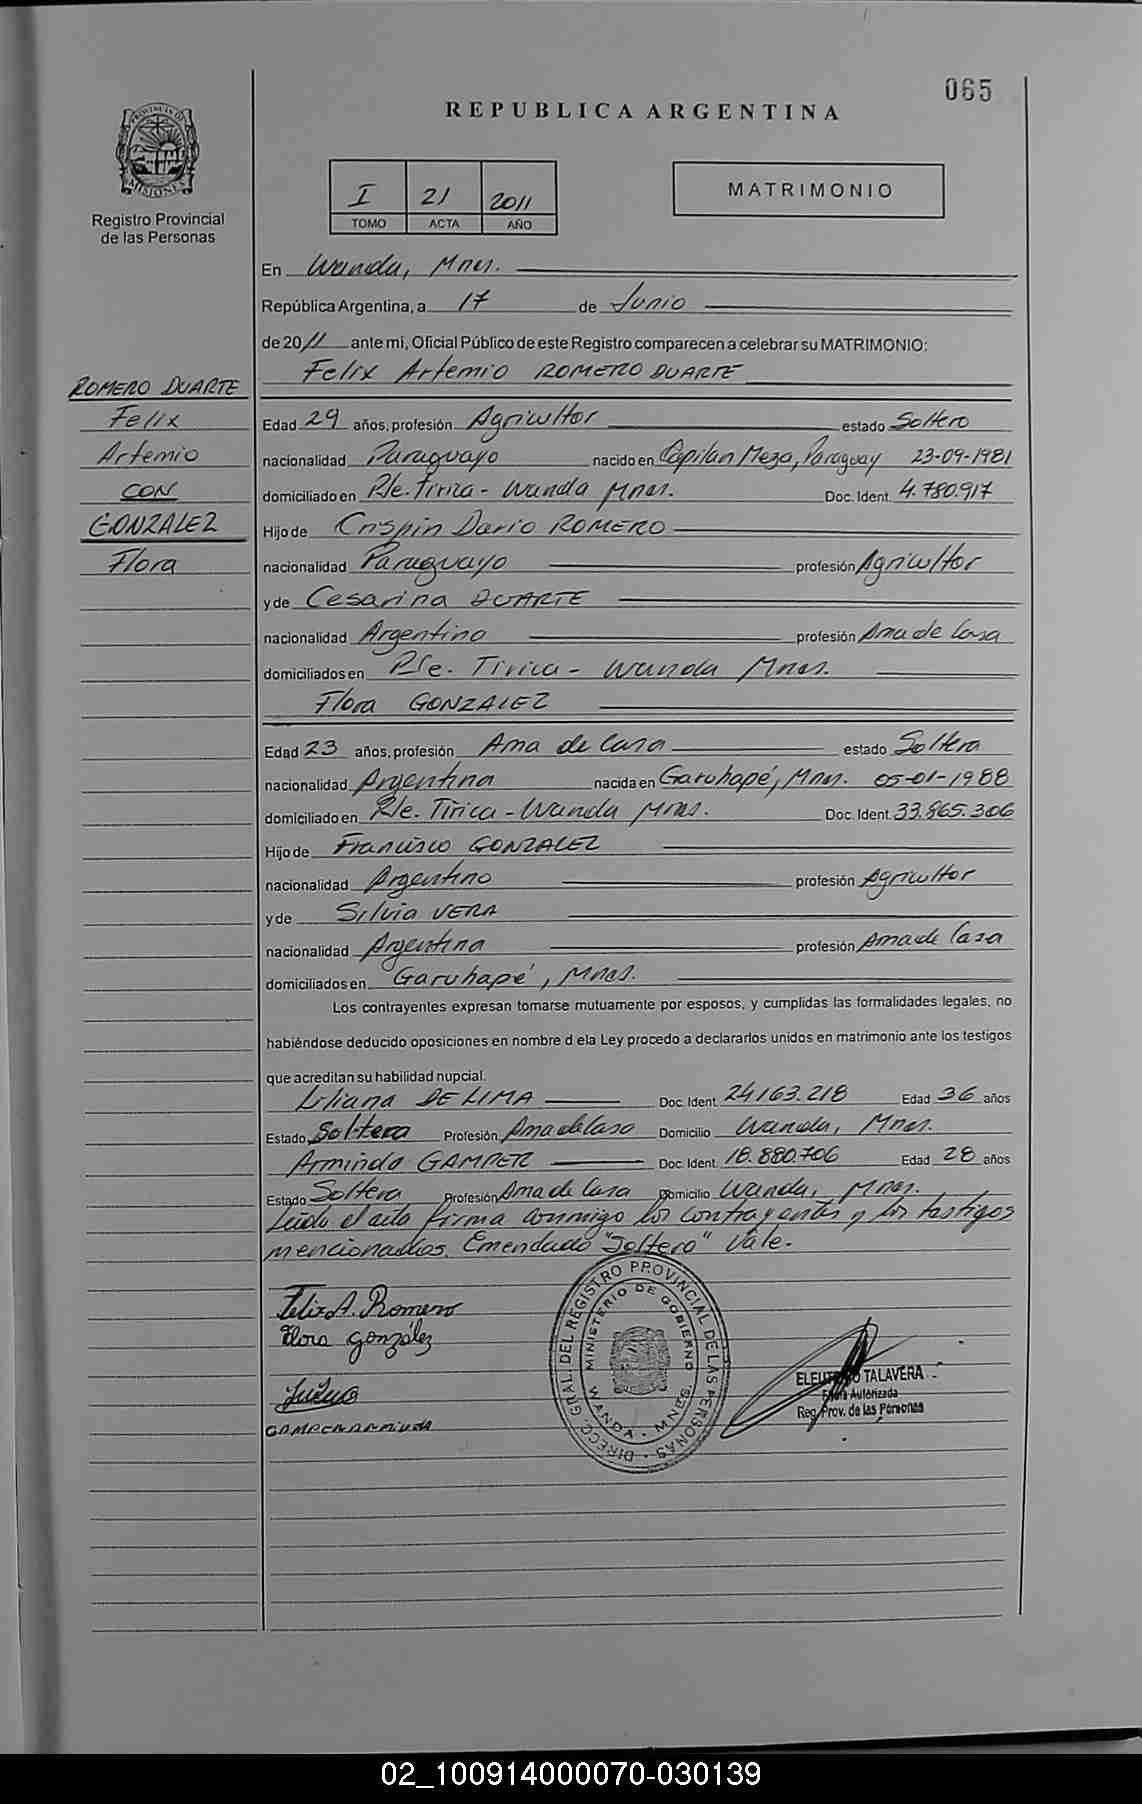 065
REPUBLICA ARGENTINA
PROVINCIA DE MISIONES
Registro Provincial
de las Personas
I 21 2011
TOMO ACTA AÑO
MATRIMONIO
En Wanda, Mnes.
República Argentina, a 17 de Junio
de 2011 ante mi, Oficial Público de este Registro comparecen a celebrar su MATRIMONIO:
Felix Artemio ROMERO DUARTE
ROMERO DUARTE
Felix
Artemio
CON
GONZALEZ
Flora
Edad 29 años, profesión Agricultor estado Soltero
nacionalidad Paraguayo nacido en Capitan Meza, Paraguay 23-09-1981
domiciliado en Pje. Tirica - Wanda Mnes. Doc. Ident. 4.780.917
Hijo de Crispin Dario ROMERO
nacionalidad Paraguayo profesión Agricultor
y de Cesarina DUARTE
nacionalidad Argentina profesión Ama de Casa
domiciliados en Pje. Tirica - Wanda Mnes.
Flora GONZALEZ
Edad 23 años, profesión Ama de Casa estado Soltera
nacionalidad Argentina nacida en Garuhapé, Mnes. 05-01-1988
domiciliado en Pje. Tirica - Wanda Mnes. Doc. Ident. 33.865.306
Hijo de Francisco GONZALEZ
nacionalidad Argentino profesión Agricultor
y de Silvia VERA
nacionalidad Argentina profesión Ama de Casa
domiciliados en Garuhapé, Mnes.
Los contrayentes expresan tomarse mutuamente por esposos, y cumplidas las formalidades legales, no
habiéndose deducido oposiciones en nombre d ela Ley procedo a declararlos unidos en matrimonio ante los testigos
que acreditan su habilidad nupcial.
Liliana DE LIMA Doc. Ident. 24.163.218 Edad 36 años
Estado Soltera Profesión Ama de Casa Domicilio Wanda, Mnes.
Arminda GAMPER Doc. Ident. 18.880.706 Edad 28 años
Estado Soltera Profesión Ama de Casa Domicilio Wanda, Mnes.
Leído el acta firma conmigo los contrayentes y los testigos
mencionados. Emendado "Soltera" Vale.
Felix A. Romero
Flora González
DIRECC. GRAL. DEL REGISTRO PROVINCIAL DE LAS PERSONAS
MINISTERIO DE GOBIERNO
WANDA - MNES.
TALAVERA
Firma Autorizada
Reg. Prov. de las Personas
02_100914000070-030139